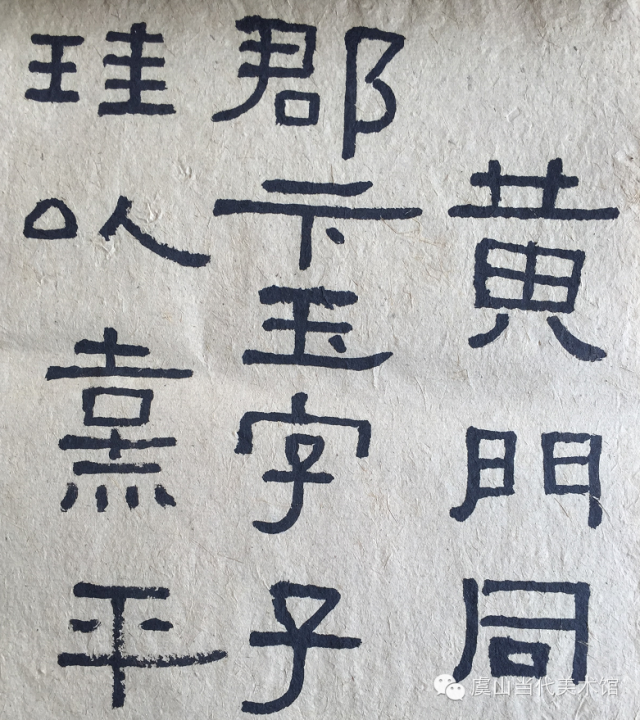 黄門同
郡卞玉字子
珪以熹平
虞山当代美术馆